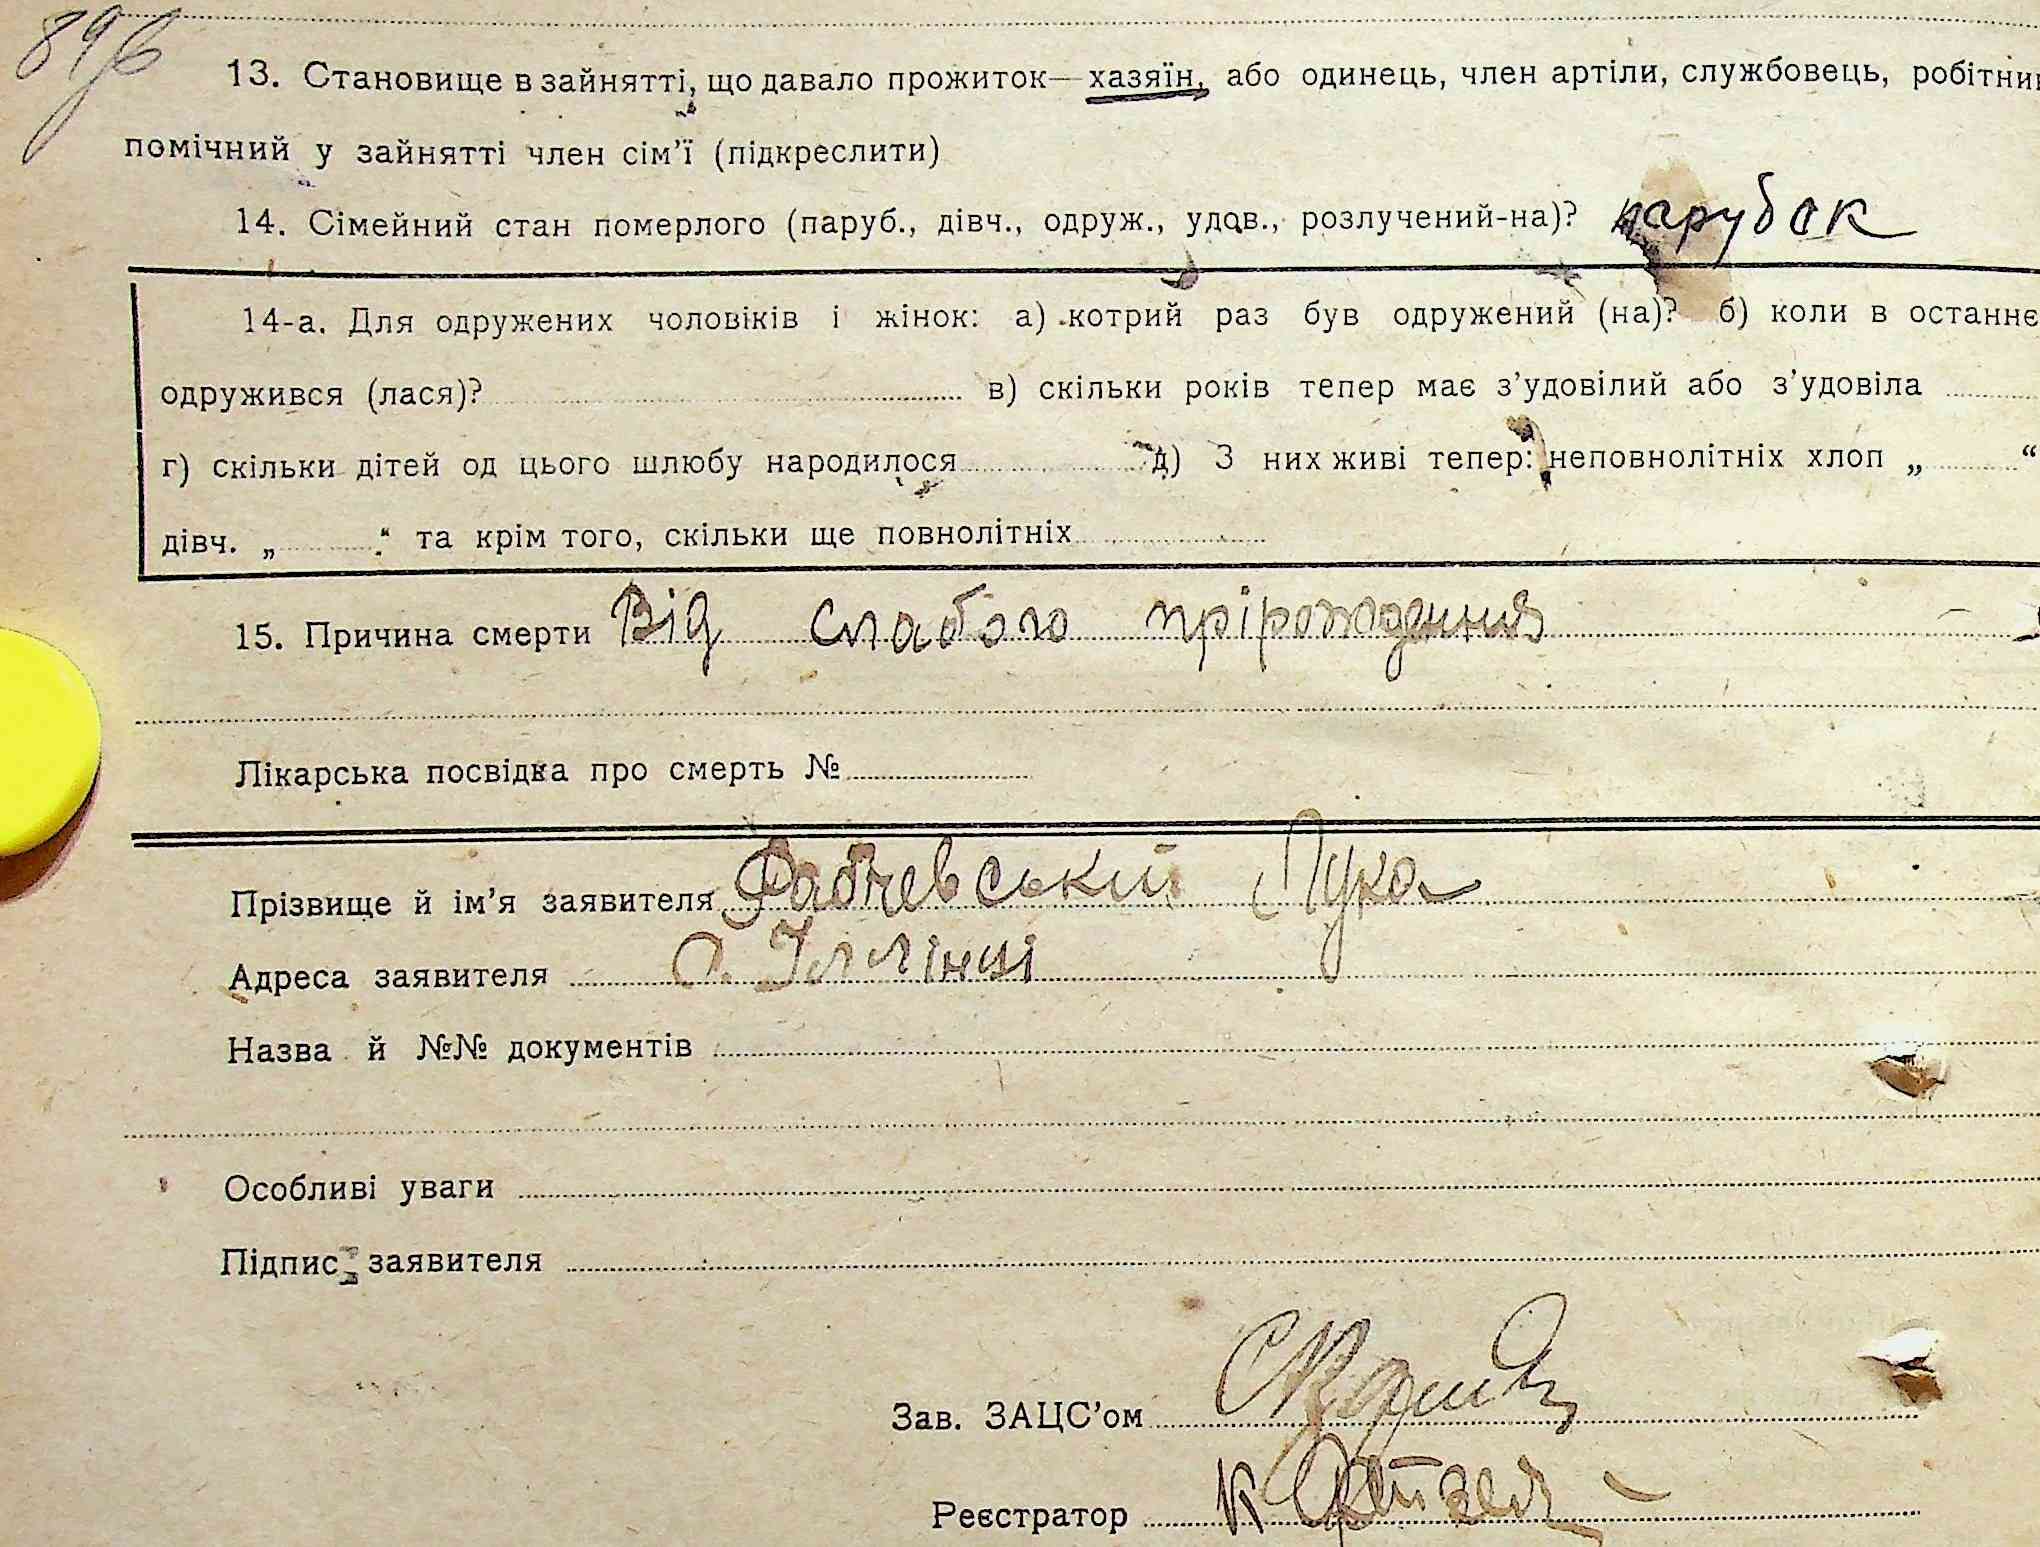 13. Становище в зайнятті, що давало прожиток— хазяїн, або одинець, член артіли, службовець,
помічний у зайнятті член сім'ї (підкреслити)
14. Сімейний стан померлого (паруб., дівч., одруж., удов., розлучений-на)? парубак
14-а. Для одружених чоловіків і жінок: а) котрий раз був одружений (на)? б) коли в останнє
одружився (лася)? в) скільки років тепер має з'удовілий або з'удовіла
г) скільки дітей од цього шлюбу народилося д) З них живі тепер: неповнолітніх хлоп „ “
дівч. „ “ та крім того, скільки ще повнолітніх
15. Причина смерти Від слабого прірождення
Лікарська посвідка про смерть №
Прізвище й ім'я заявителя Лука
Адреса заявителя с. Іллінці
Назва й №№ документів
Особливі уваги
Підпис заявителя
Зав. ЗАЦС'ом
Реєстратор